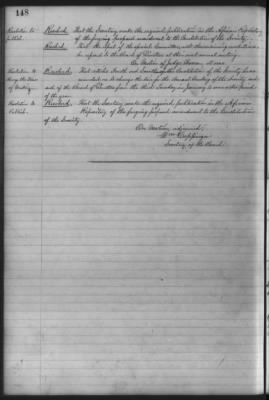 148
Resolution to Resolved, That the Secretary make the required publication in the African Repository
publish. of the foregoing proposed amendment to the Constitution of the Society.
Resolved, That the report of the special Committee, with the accompanying resolutions
be report to the Board of Directors at the next annual meeting.
On Motion of Judge
Resolution to Resolved, That Section of the Constitution of the Society be
change the time amended so as to change the time of the annual meeting of the Society and
of Meeting. of the Board of Directors from the third Tuesday in January to some other period
of the year.
Resolution to Resolved, That the Secretary make the required publication in the African
Publish. Repository of the foregoing proposed amendment to the Constitution
of the Society.
On Motion, adjourned.
Wm Coppinger
Secretary of the Board.